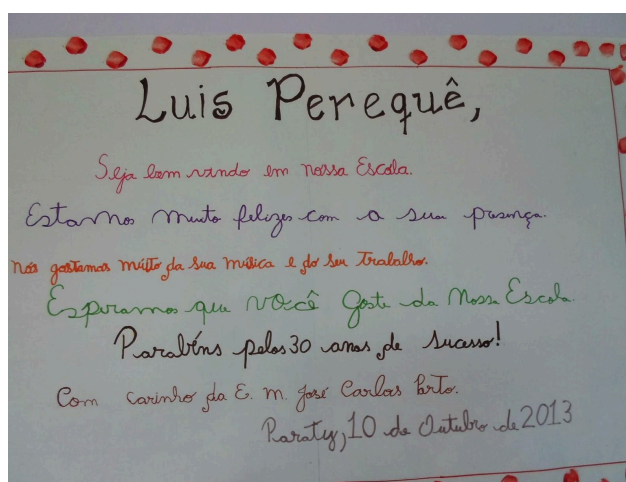 Luis Perequê,
Seja bem vindo em nossa Escola.
Estamos muito felizes com a sua presença.
Nós gostamos muito da sua música e do seu Trabalho.
Esperamos que você goste da Nossa Escola
Parabéns pelos 30 anos de sucesso!
Com carinho da E. M. José Carlos Porto.
Paraty, 10 de Outubro de 2013